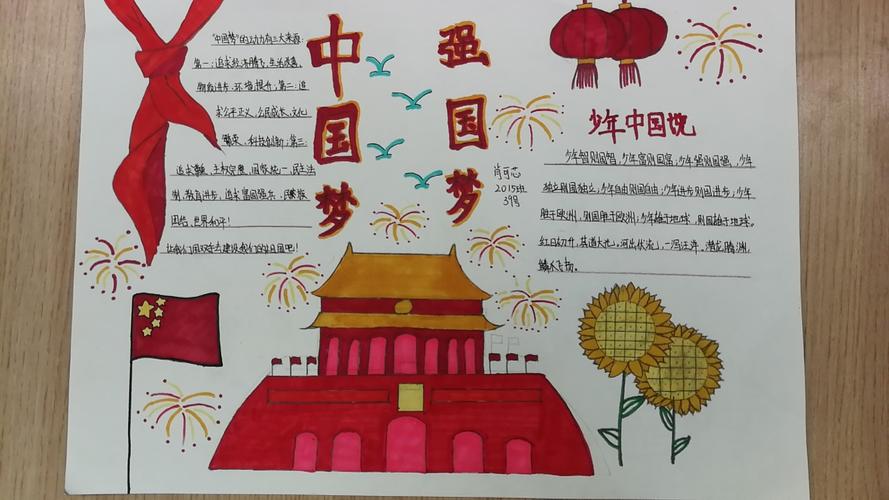 "中国梦"的动力有三大来源:
第一:追求经济腾飞,生活改善,
物质进步,环境提升;第二:追
求公平正义,公民成长,文化
繁荣、科技创新;第三:
追求 主权完整,国家统一,民主法
制,教育进步,追求富国强兵,民族
团结,世界和平!
让我们同 去建设我们的 吧!
中国梦
强国梦
肖可芯
2015班
39号
少年中国说
少年智则国智,少年富则国富;少年强则国强,少年
独立则国独立;少年自由则国自由;少年进步则国进步;少年
胜于欧洲,则国胜于欧洲;少年雄于地球,则国雄于地球。
红日初升,其道大光。河出伏流,一泻汪洋。潜龙腾渊,
鳞爪飞扬。